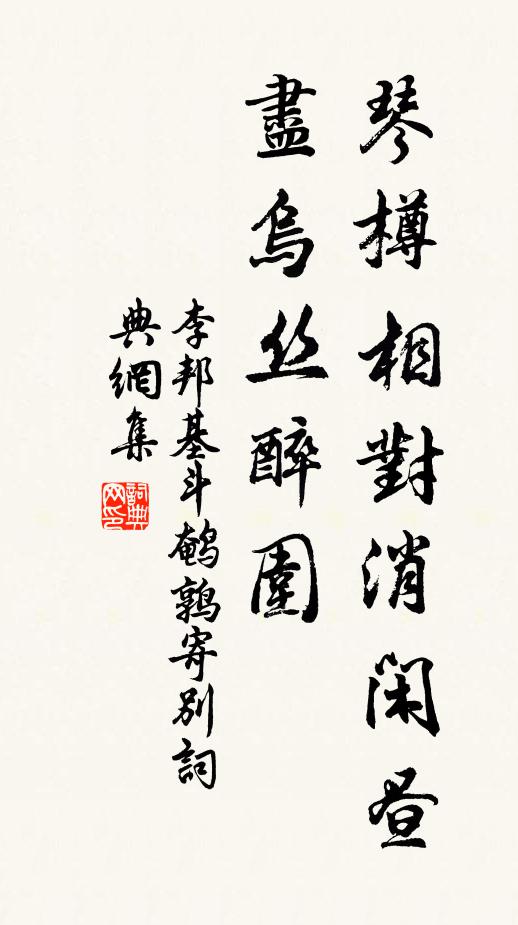 琴樽相對消閑昼
盡烏丝醉圍
李邦基斗鵪鶉寄別詞
典網集
詞典
网印